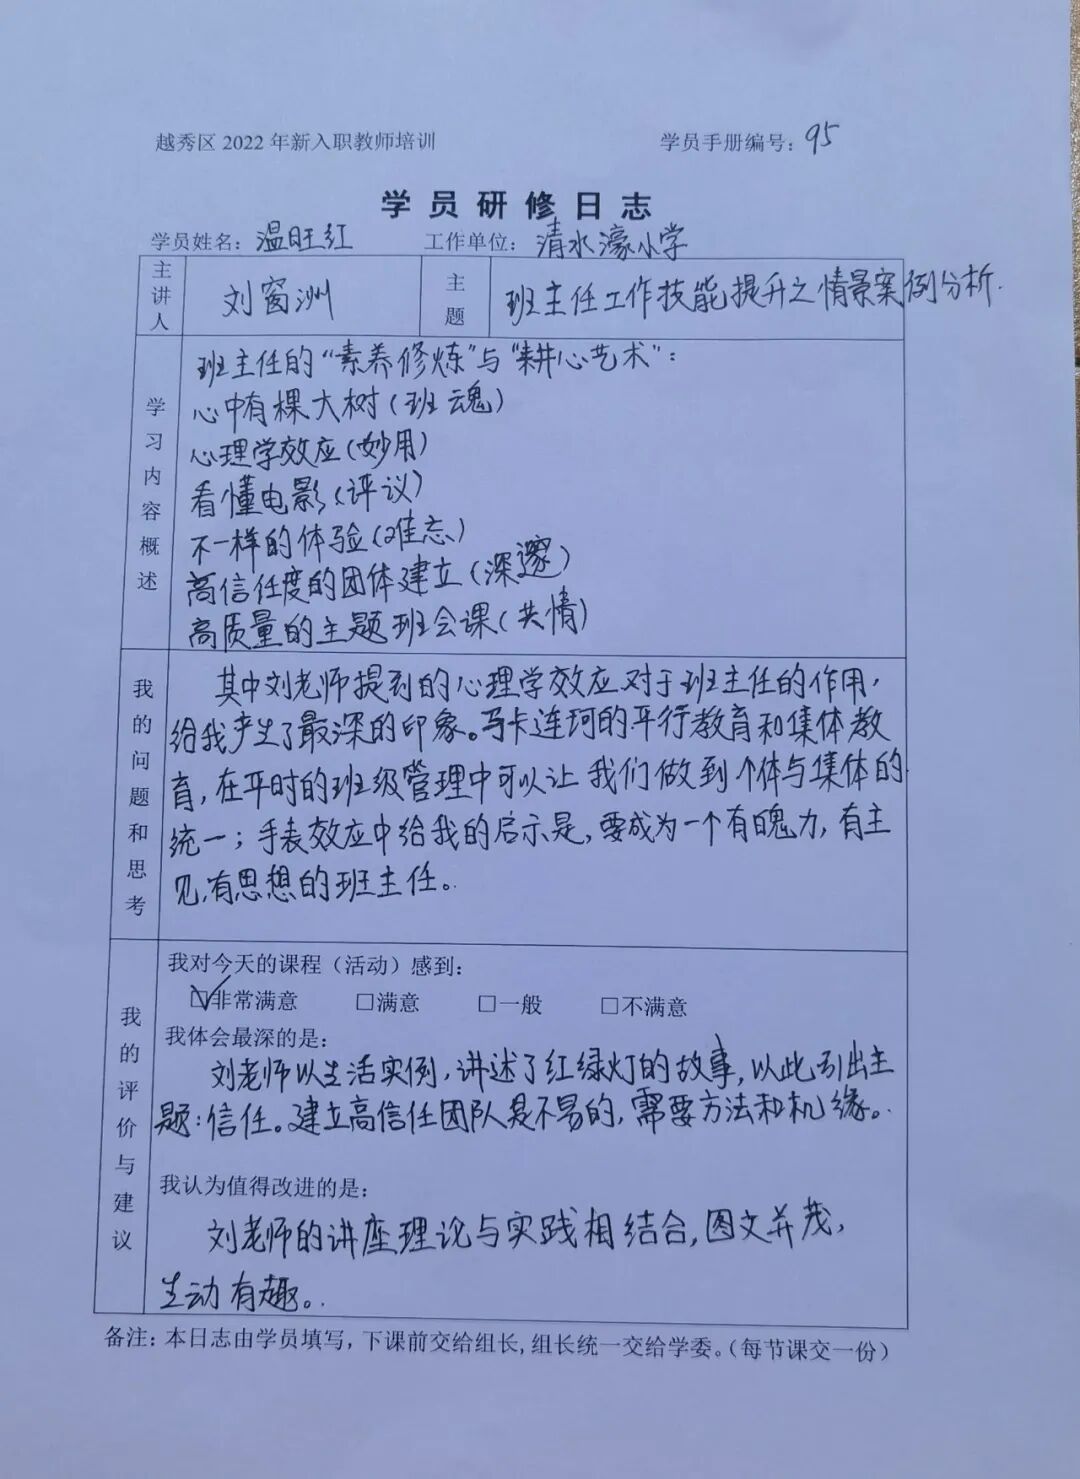 越秀区 2022 年新入职教师培训 学员手册编号：95
学员研修日志
学员姓名：温旺红 工作单位：清水濠小学
主讲人 刘窗洲 主题 班主任工作技能提升之情景案例分析.
学习内容概述
班主任的“素养修炼”与“耕心艺术”：
心中有棵大树（班魂）
心理学效应（妙用）
看懂电影（评议）
不一样的体验（难忘）
高信任度的团体建立（深邃）
高质量的主题班会课（共情）
我的问题和思考
其中刘老师提到的心理学效应对于班主任的作用，
给我产生了最深的印象。马卡连珂的平行教育和集体教
育，在平时的班级管理中可以让我们做到个体与集体的
统一；手表效应中给我的启示是，要成为一个有魄力，有主
见，有思想的班主任。
我的评价与建议
我对今天的课程（活动）感到：
☑非常满意 □满意 □一般 □不满意
我体会最深的是：
刘老师以生活实例，讲述了红绿灯的故事，以此引出主
题：信任。建立高信任团队是不易的，需要方法和机缘。
我认为值得改进的是：
刘老师的讲座理论与实践相结合，图文并茂，
生动有趣。
备注：本日志由学员填写，下课前交给组长，组长统一交给学委。（每节课交一份）